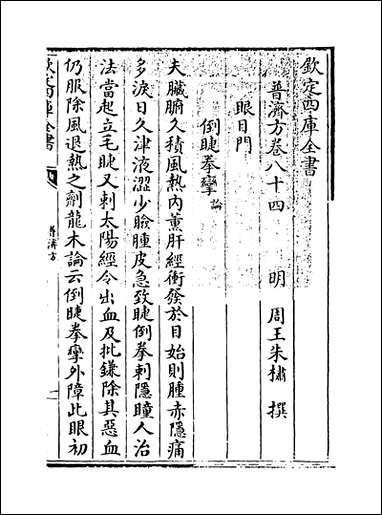 欽定四庫全書
普濟方卷八十四　明　周王朱橚　撰
眼目門
倒睫拳攣論
夫臟腑久積風熱內薰肝經衝發於目始則腫赤隱痛
多淚日久津液澀少瞼腫皮急致睫倒拳刺隱瞳人治
法當起立毛睫又刺太陽經令出血及批鎌除其惡血
仍服除風退熱之劑龍木論云倒睫拳攣外障此眼初
欽定四庫全書
普濟方
一